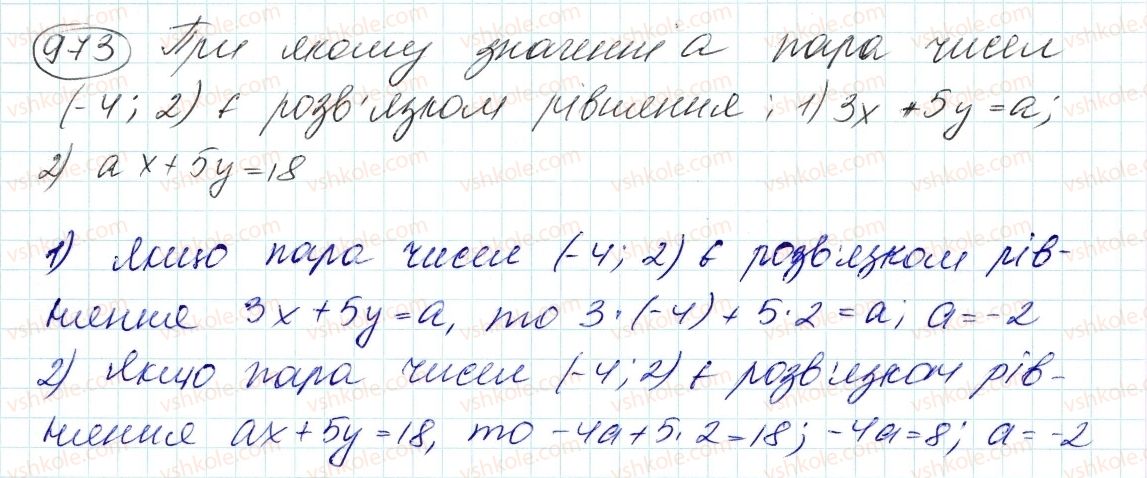 973 При якому значенні a пара чисел
(-4; 2) є розв'язком рівняння: 1) 3x + 5y = a;
2) a x + 5y = 18
1) Якщо пара чисел (-4; 2) є розв'язком рів-
няння 3x + 5y = a, то 3·(-4) + 5·2 = a; a = -2
2) Якщо пара чисел (-4; 2) є розв'язком рів-
няння ax + 5y = 18, то -4a + 5·2 = 18; -4a = 8; a = -2